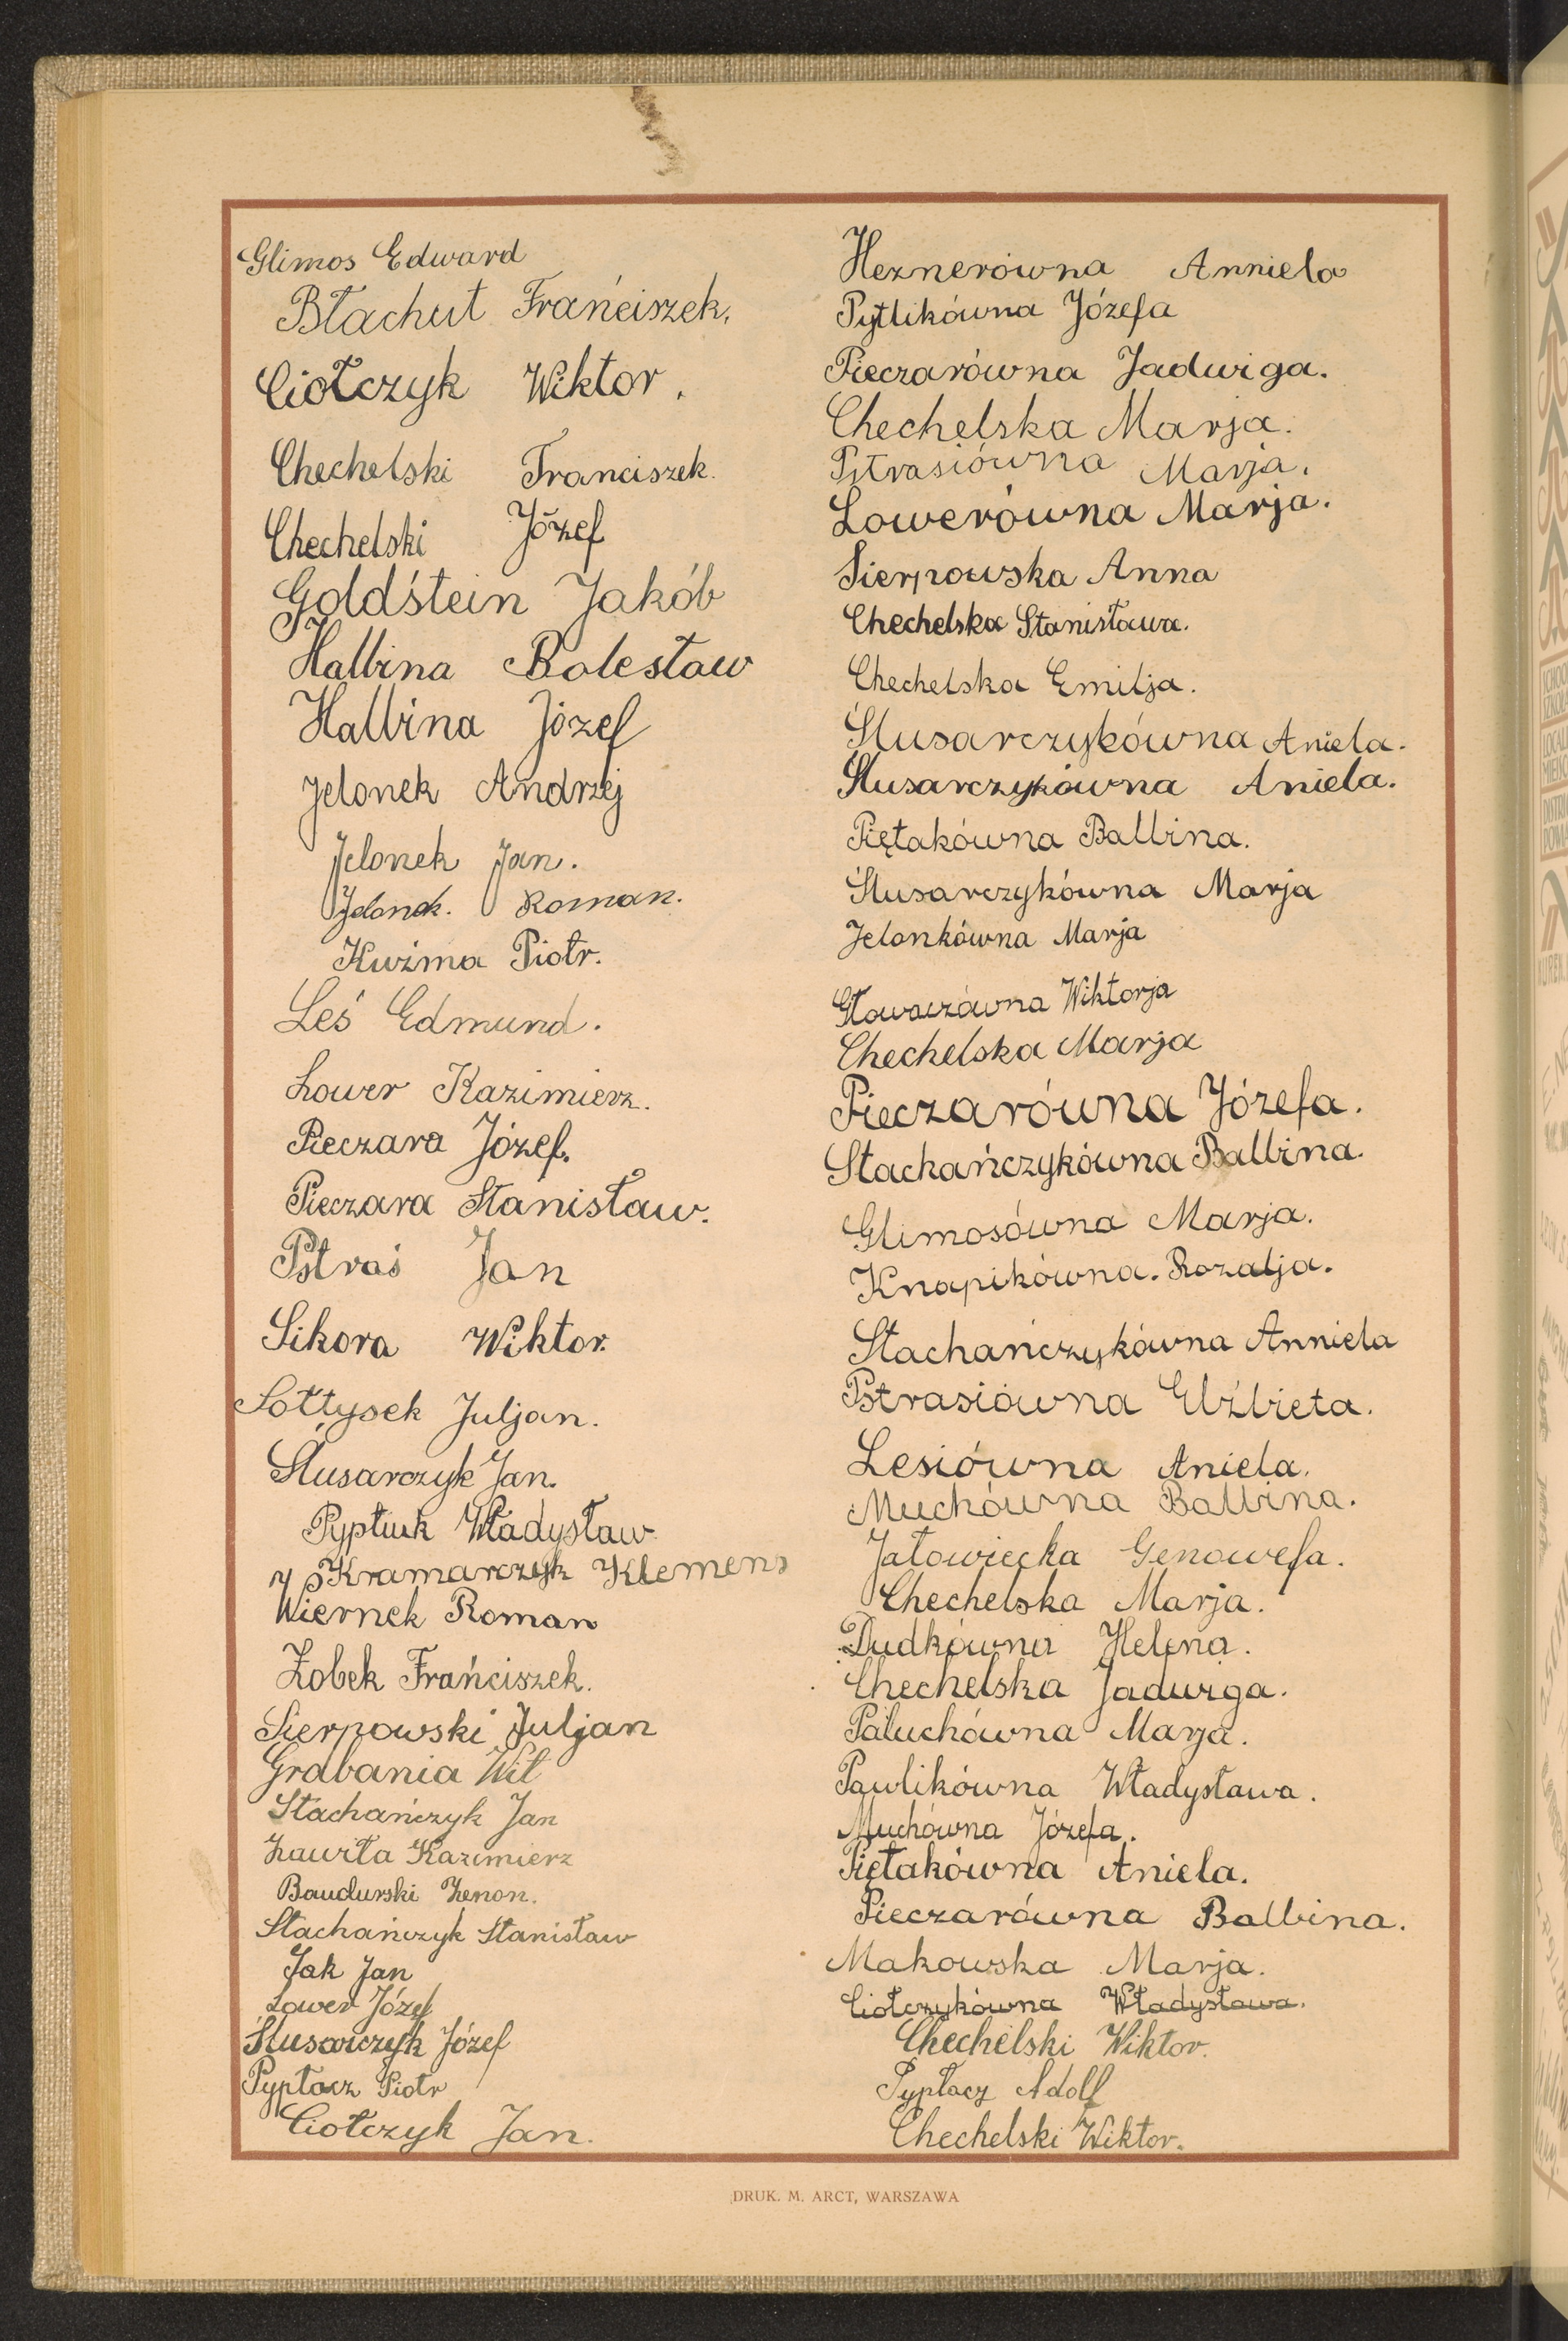 Glimos Edward
Błachut Frańciszek.
Ciołczyk Wiktor.
Chechelski Franciszek.
Chechelski Józef
Goldśtein Jakób
Halbina Bolesław
Halbina Józef
Jelonek Andrzej
Jelonek Jan.
Jelonek. Roman.
Kuźma Piotr.
Leś Edmund.
Lower Kazimierz.
Pieczara Józef.
Pieczara Stanisław.
Pstraś Jan
Sikora Wiktor.
Sołtysek Juljan.
Ślusarczyk Jan.
Pyptiuk Władysław
Kramarczyk Klemens
Wiernek Roman
Żobek Frańciszek.
Sierpowski Juljan
Grabania Wit
Stachańczyk Jan
Zawiła Kazimierz
Baudurski Zenon.
Stachańczyk Stanisław
Jak Jan
Lower Józef
Ślusarczyk Józef
Pyptacz Piotr
Ciołczyk Jan.
Heznerówna Anniela
Pytlikówna Józefa
Pieczarówna Jadwiga.
Chechelska Marja.
Pstrasiówna Marja.
Lowerówna Marja.
Sierpowska Anna
Chechelska Stanisława.
Chechelska Emilja.
Ślusarczykówna Aniela.
Ślusarczykówna Aniela.
Piętakówna Balbina.
Ślusarczykówna Marja
Jelonkówna Marja
Głowaczówna Wiktorja
Chechelska Marja
Pieczarówna Józefa.
Stachańczykówna Balbina.
Glimosówna Marja.
Knapikówna. Rozalja.
Stachańczykówna Anniela
Pstrasiówna Elżbieta.
Lesiówna Aniela.
Muchówna Balbina.
Jałowiecka Genowefa.
Chechelska Marja.
Dudkówna Helena.
Chechelska Jadwiga.
Paluchówna Marja.
Pawlikówna Władysława.
Muchówna Józefa.
Piętakówna Aniela.
Pieczarówna Balbina.
Makowska Marja.
Ciołczykówna Władysława.
Chechelski Wiktor.
Pyptacz Adolf
Chechelski Wiktor.
DRUK. M. ARCT, WARSZAWA